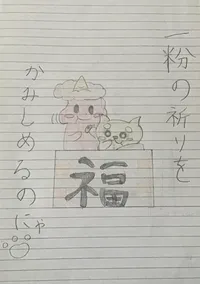 一粉の祈りを
福
かみしめるのにゃ